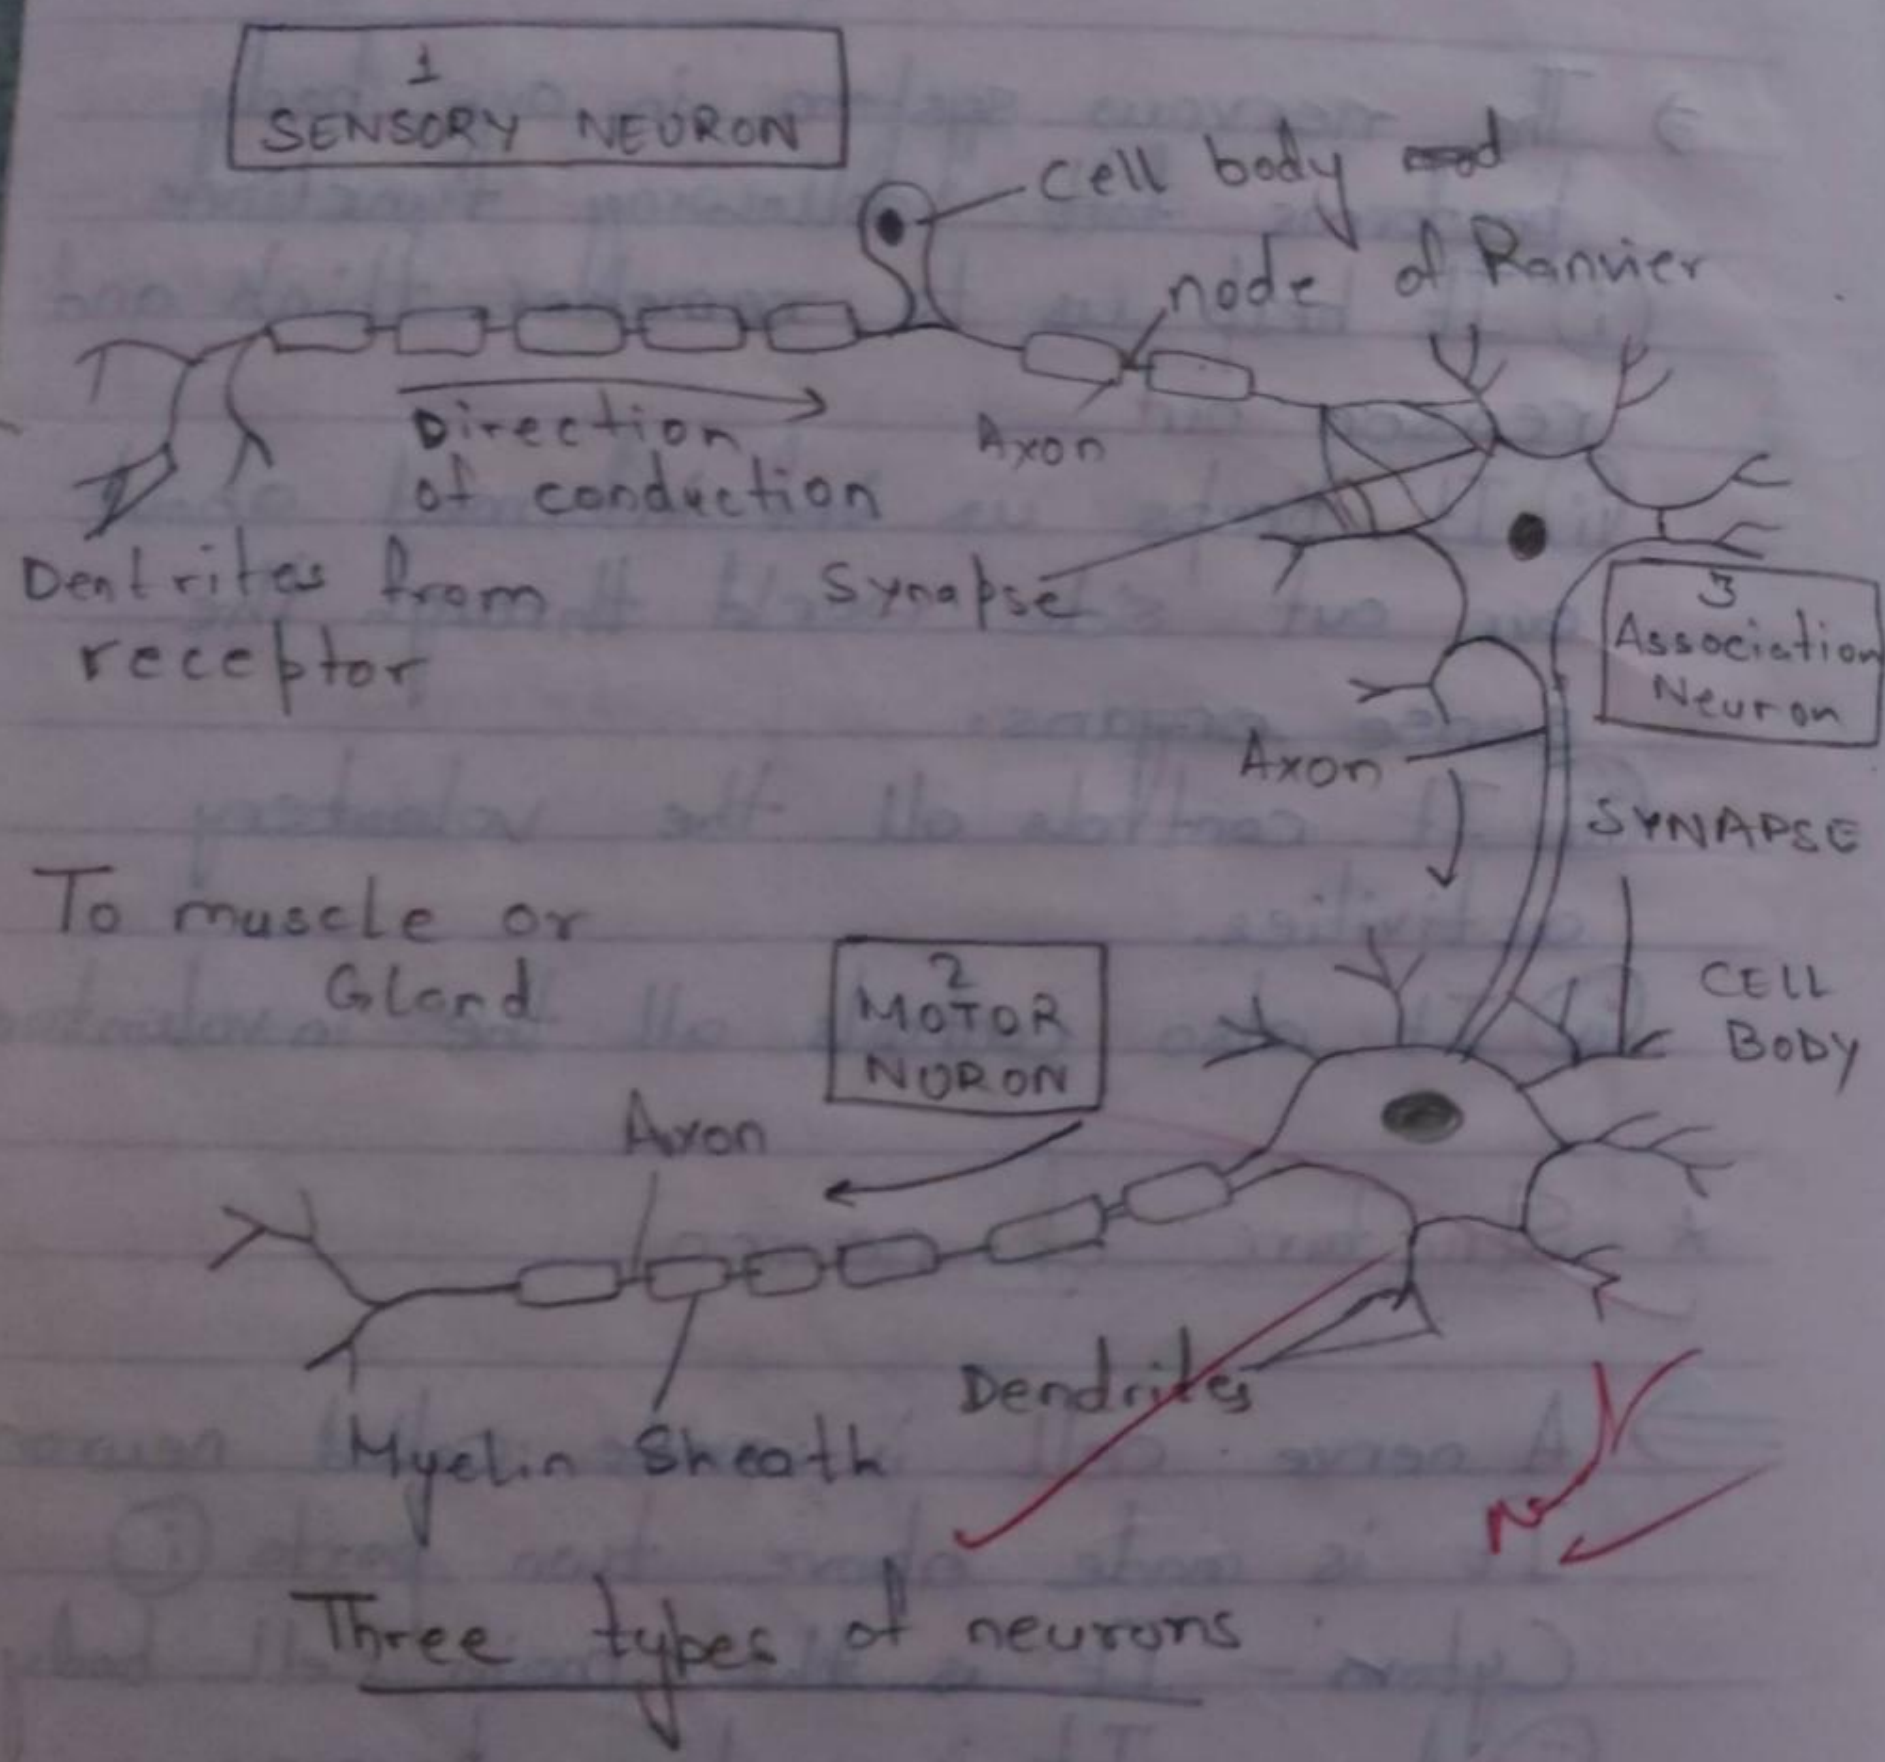 1
SENSORY NEURON
Cell body
node of Ranvier
Direction
of conduction
Axon
Dentrites from
receptor
Synapse
3
Association
Neuron
Axon
SYNAPSE
To muscle or
Gland
2
MOTOR
NURON
CELL
BODY
Axon
Dendrites
Myelin Sheath
Three types of neurons